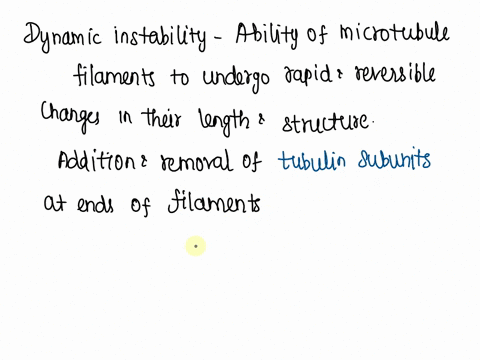 Dynamic instability - Ability of microtubule
filaments to undergo rapid & reversible
Changes in their length & structure.
Addition & removal of tubulin subunits
at ends of filaments